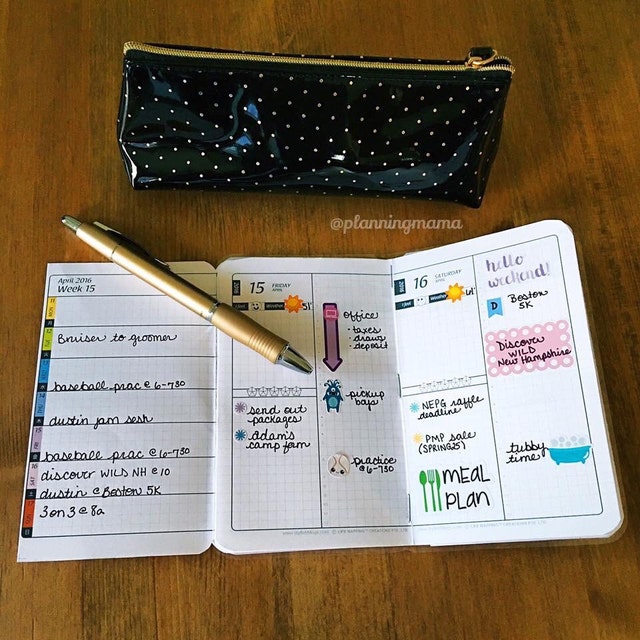 @planningmama
April 2016
Week 15
Bruiser to groomer
baseball prac @ 6-730
dustin jam sesh
baseball prac @ 6-730
discover WILD NH @ 10
dustin @ Boston 5K
3 on 3 @ 8a
2016
15 FRIDAY
APRIL
I feel
Weather
51°
send out
packages
adam's
camp farm
office
• taxes
• draws
• deposit
pickup
boys
practice
@ 6-730
2016
16 SATURDAY
APRIL
I feel
Weather
61°
NEPG raffle
deadline
PMP sale
(SPRING25)
MEAL
PLAN
hello
weekend!
D
Boston
5K
Discover
WILD
New Hampshire
tubby
time